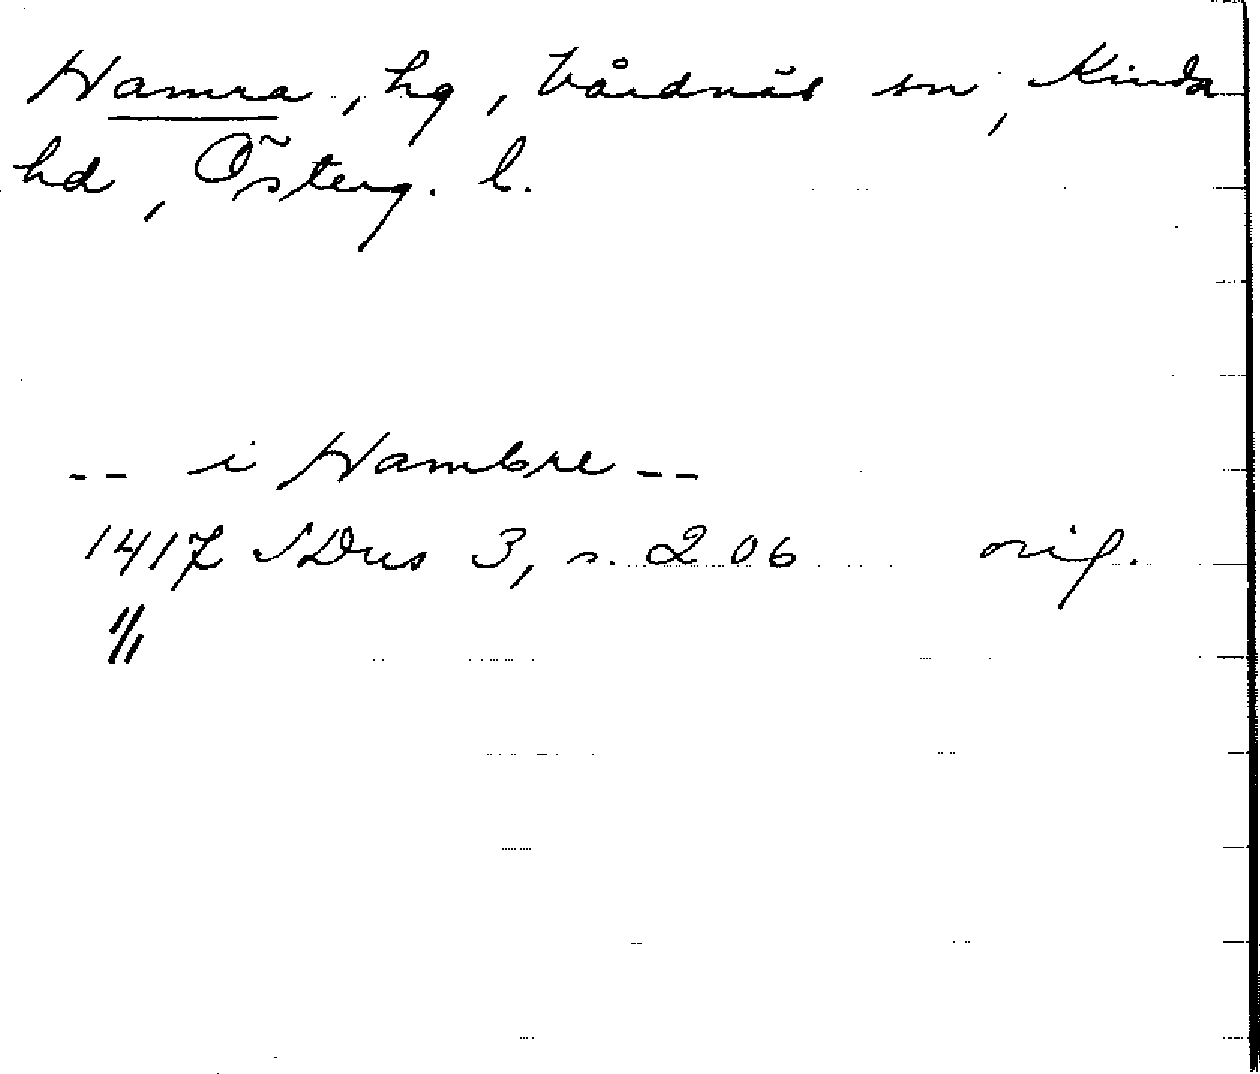 Hamra, hg, Vårdnäs sn, Kinda
hd, Österg. l.
-- i Hambre --
1417 SDns 3, s. 206 orig.
//